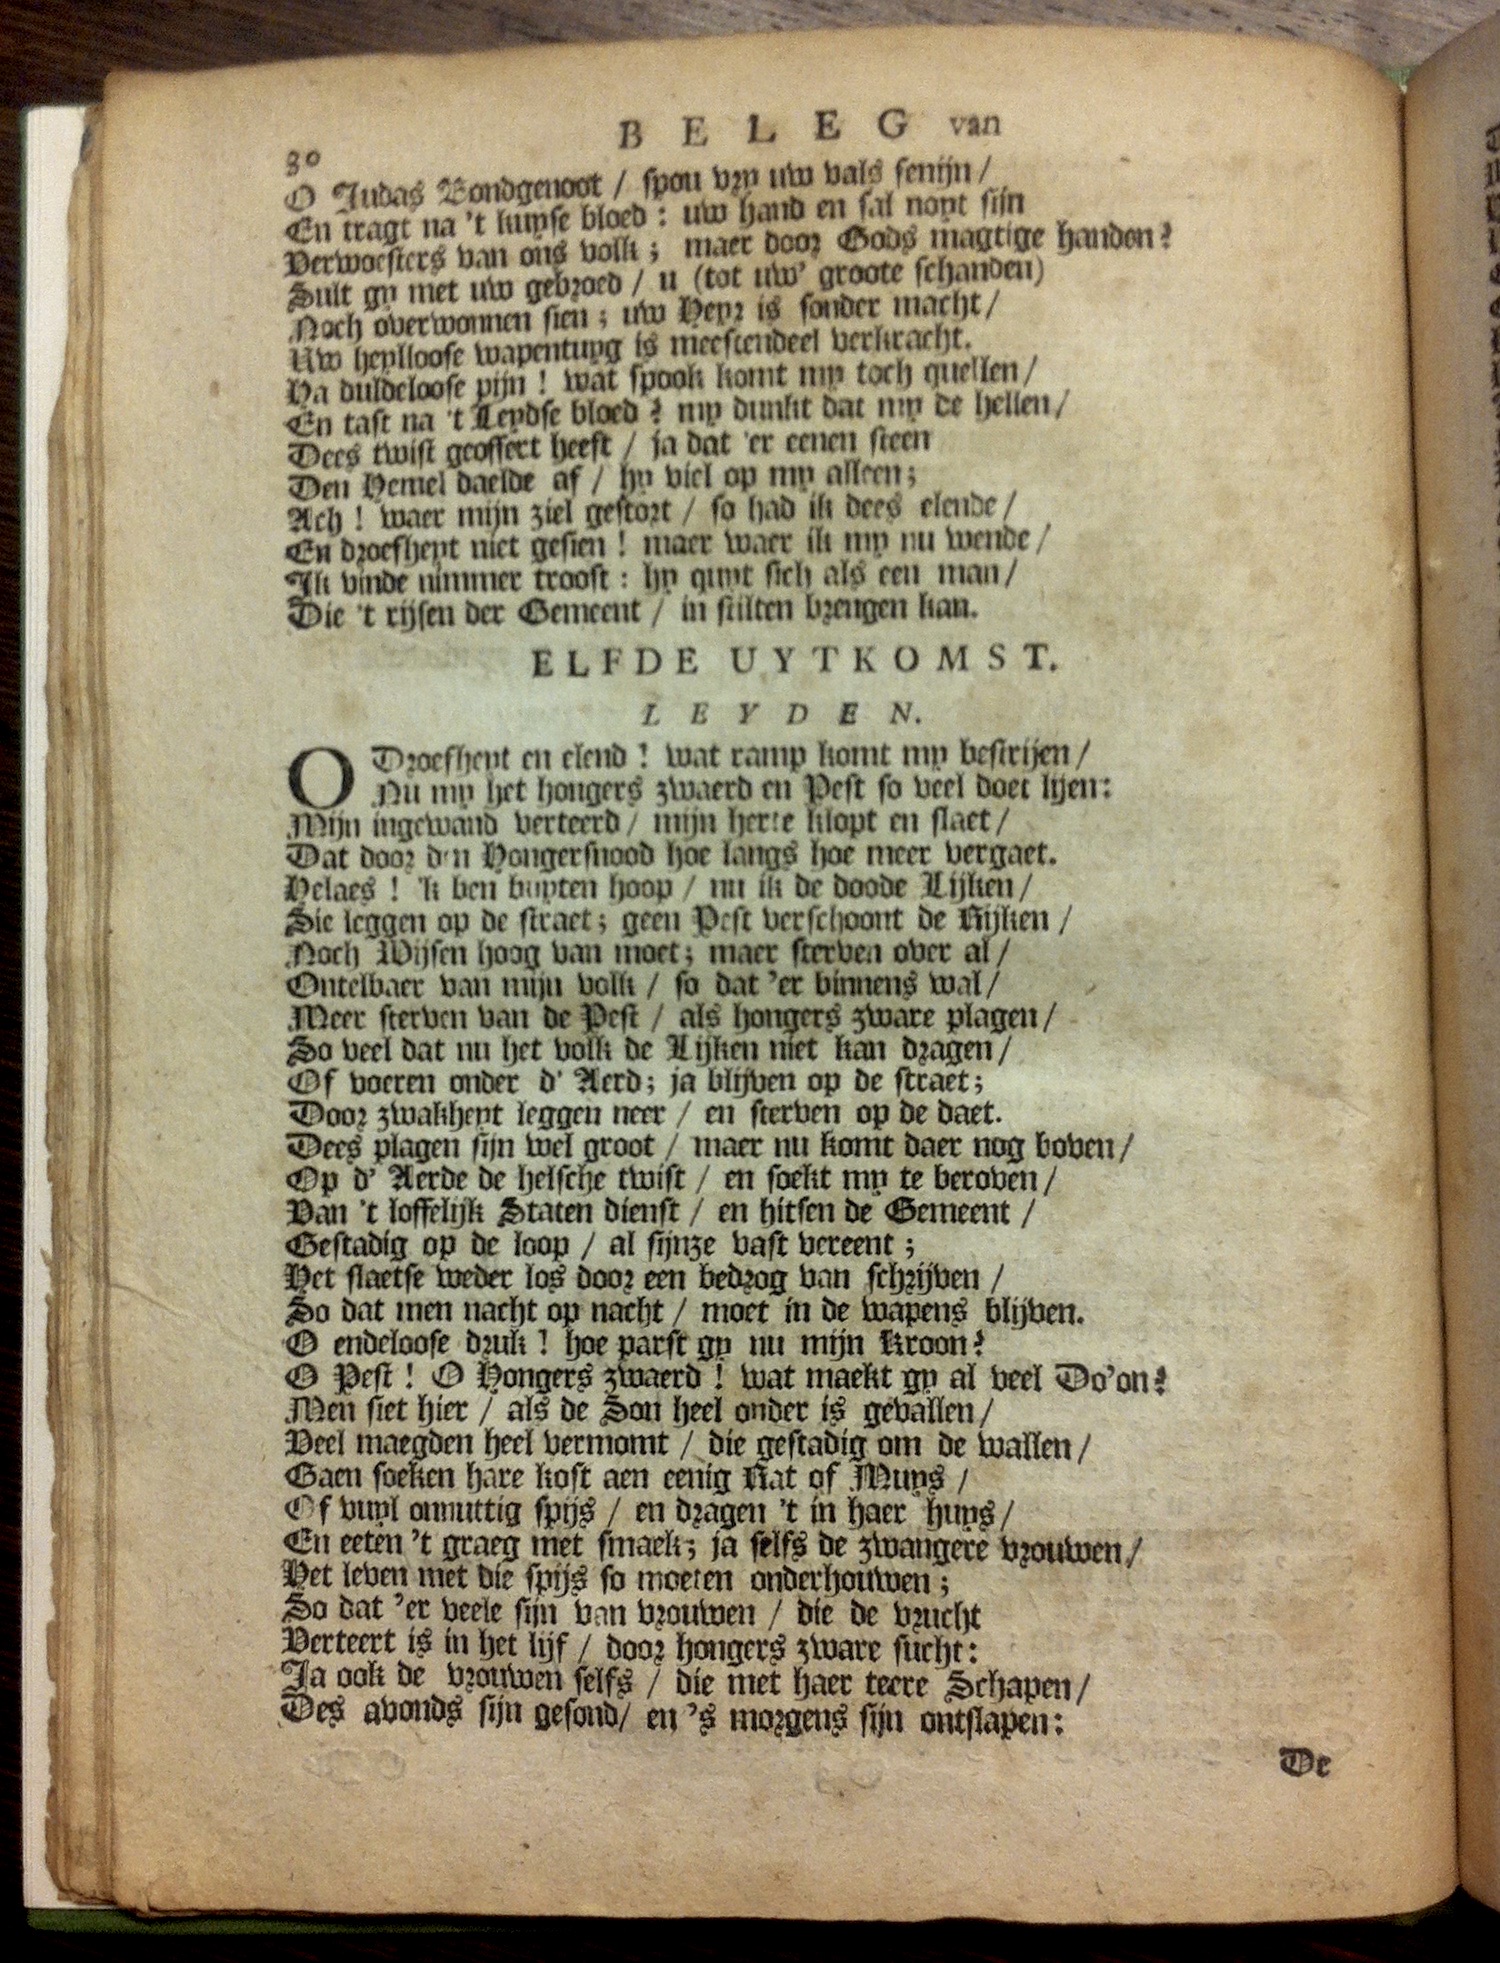 BELEG van
30
O Judas Bondgenoot / spou vry uw vals fenijn /
En tragt na 't kuyse bloed: uw hand en sal noyt sijn
Verwoesters van ons volk; maer door Gods magtige handen?
Sult gy met uw gebroed / u (tot uw' groote schanden)
Noch overwonnen sien; uw Heyr is sonder macht /
Uw heylloose wapentuyg is meestendeel verkracht.
Ha duldeloose pijn! wat spook komt my toch quellen /
En tast na 't Leydse bloed? my dunkt dat my de hellen /
Dees twist geoffert heeft / ja dat 'er eenen steen
Den Hemel daelde af / hy viel op my alleen;
Ach! waer mijn ziel gestort / so had ik dees elende /
En droefheyt niet gesien! maer waer ik my nu wende /
Ik vinde nimmer troost: hy quyt sich als een man /
Die 't rijsen der Gemeent / in stilten brengen kan.
ELFDE UYTKOMST.
LEYDEN.
O Droefheyt en elend! wat ramp komt my bestrijen /
Nu my het hongers zwaerd en Pest so veel doet lijen:
Mijn ingewand verteerd / mijn herte klopt en slaet /
Dat door den Hongersnood hoe langs hoe meer vergaet.
Helaes! 'k ben buyten hoop / nu ik de doode Lijken /
Sie leggen op de straet; geen Pest verschoont de Rijken /
Noch Wijsen hoog van moet; maer sterven over al /
Ontelbaer van mijn volk / so dat 'er binnens wal /
Meer sterven van de Pest / als hongers zware plagen /
So veel dat nu het volk de Lijken niet kan dragen /
Of voeren onder d' Aerd; ja blijven op de straet;
Door zwakheyt leggen neer / en sterven op de daet.
Dees plagen sijn wel groot / maer nu komt daer nog boven /
Op d' Aerde de helsche twist / en soekt my te beroven /
Van 't loffelijk Staten dienst / en hitsen de Gemeent /
Gestadig op de loop / al sijnze vast vereent;
Het slaetse weder los door een bedrog van schrijven /
So dat men nacht op nacht / moet in de wapens blijven.
O endeloose druk! hoe parst gy nu mijn Kroon?
O Pest! O Hongers zwaerd! wat maekt gy al veel Do'on?
Men siet hier / als de Son heel onder is gevallen /
Veel maegden heel vermomt / die gestadig om de wallen /
Gaen soeken hare kost aen eenig Rat of Muys /
Of vuyl onnuttig spijs / en dragen 't in haer huys /
En eeten 't graeg met smaek; ja selfs de zwangere vrouwen /
Het leven met die spijs so moeten onderhouwen;
So dat 'er veele sijn van vrouwen / die de vrucht
Verteert is in het lijf / door hongers zware sucht:
Ja ook de vrouwen selfs / die met haer teere Schapen /
Des avonds sijn gesond / en 's morgens sijn ontslapen:
De